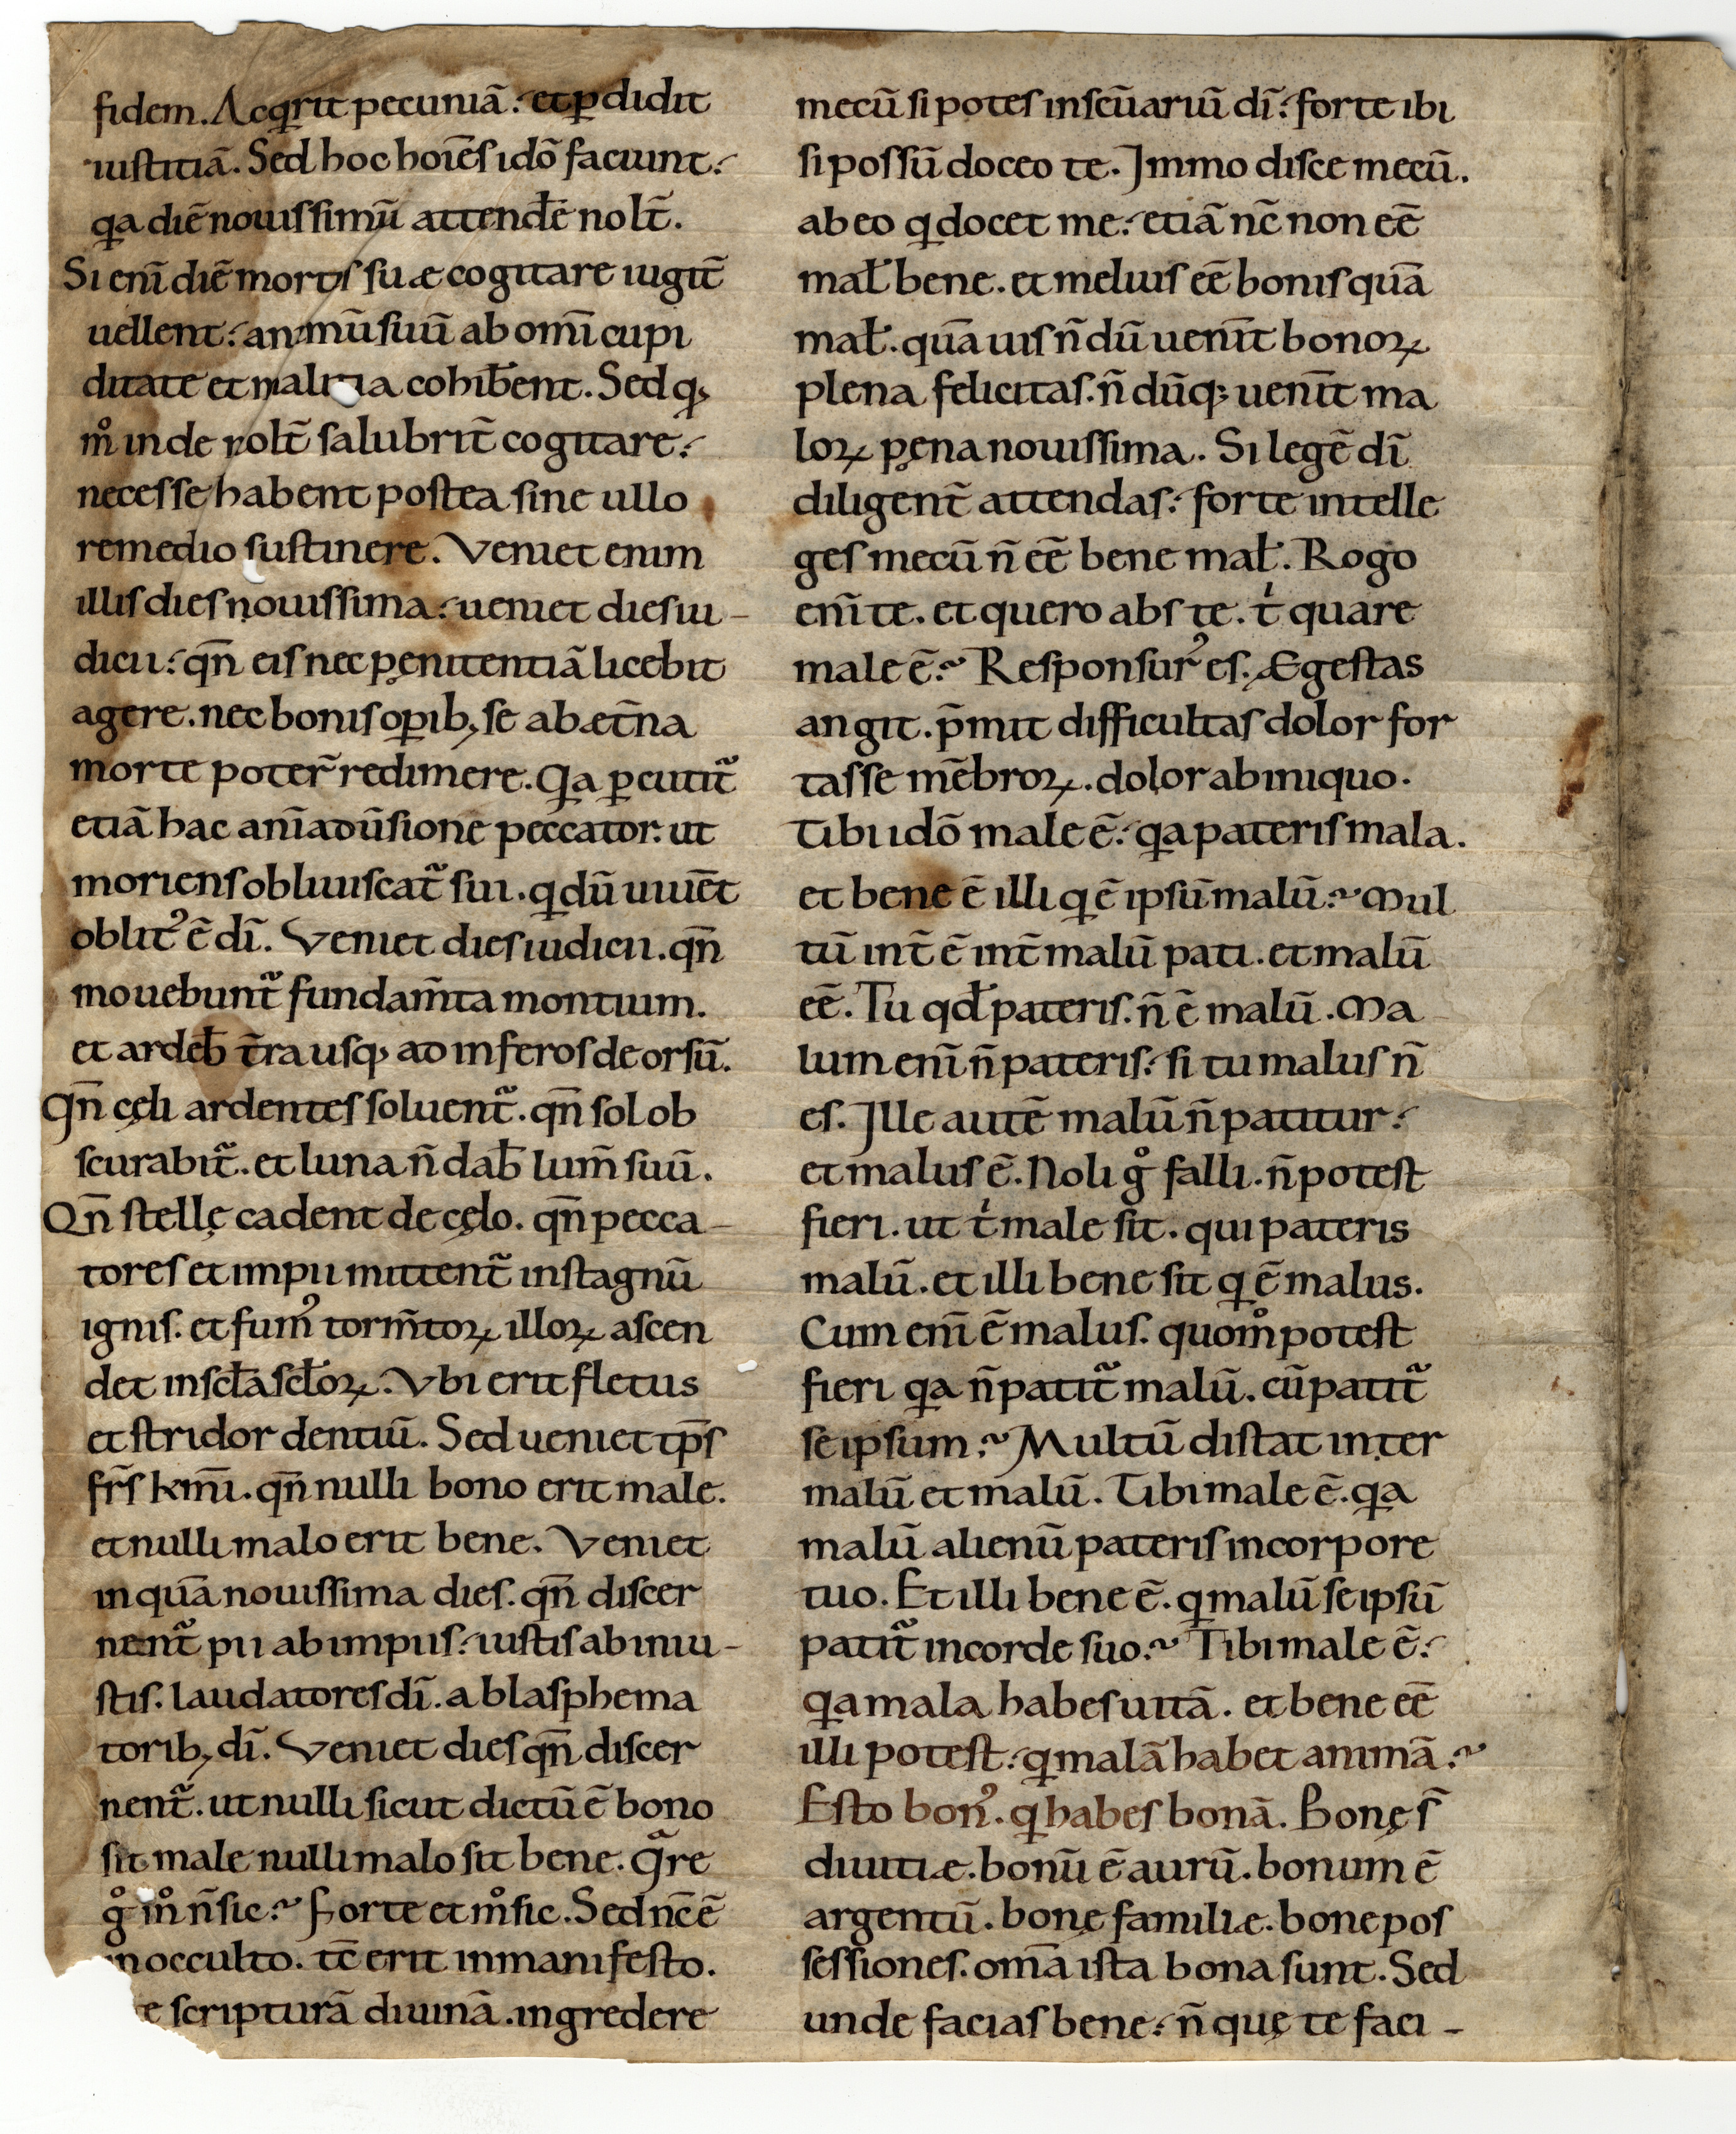 fidem. Acqͥrit pecuniā. et ꝑdidit
iustitiā. Sed hoc hoīes idō faciunt.
qͥa diē nouissimū attendēe nolt̄.
Si enī diē mortis suæ cogitare iugit̄
uellent. animū suū ab om̄i cupi
ditate et malitia cohib̄ent. Sed qꝫ
m̊ inde nolt̄ salubrit̄ cogitare.
necesse habent postea sine ullo
remedio sustinere. Veniet enim
illis dies nouissima. ueniet dies iu-
dicii. qn̄ eis nec pęnitentiā licebit
agere. nec bonis oꝑibꝫ se ab æt̄na
morte poter̄ redimere. Qͥa ꝑcutit᷑
etiā hac anīaduūsione peccator. ut
moriens obliuiscat᷑ sui. qͥ dū uiuēt
oblitꝰ ē dī. Veniet dies iudicii. qn̄
mouebunt᷑ fundam̄ta montium.
et ardeb̄ t̄ra usqꝫ ad inferos deorsū.
Qn̄ cęli ardentes soluent᷑. qn̄ sol ob
scurabit᷑. et luna n̄ dab̄ lum̄ suū.
Qn̄ stellę cadent de cęlo. qn̄ pecca-
tores et impii mittent᷑ in stagnū
ignis. et fumꝰ torm̄toꝝ illoꝝ ascen
det in scła scłoꝝ. Vbi erit fletus
et stridor dentiū. Sed ueniet tp̄s
fr̄s km̄i. qn̄ nulli bono erit male.
et nulli malo erit bene. Veniet
inquā nouissima dies. qn̄ discer
nent᷑ pii ab impiis. iustis ab iniu-
stis. laudatores dī. a blasphema
toribꝫ dī. Veniet dies qn̄ discer
nent᷑. ut nulli sicut dictū ē bono
sit male nulli malo sit bene. Qͣre
g̊ m̊ n̄ sic. Forte et m̊ sic. Sed nc̄ ē
in occulto. tc̄ erit in manifesto.
e scripturā diuinā. ingredere
mecū si potes in scūariū dī. forte ibi
si possū doceo te. Immo disce mecū.
ab eo qͥ docet me. etiā nc̄ non eē
mał bene. et melius eē bonis quā
mał. quāuis n̄dū uenīt bonoꝝ
plena felicitas. n̄ dūqꝫ uenīt ma
loꝝ pęna nouissima. Si legē dī
diligent̄ attendas. forte intelle
ges mecū n̄ eē bene mał. Rogo
enī te. et quero abs te. tͥ quare
male ē. Responsurꝰ es. Ægestas
angit. p̄mit difficultas dolor for
tasse mēbroꝝ. dolor ab iniquo.
Tibi idō male ē. qͥa pateris mala.
et bene ē illi qͥ ē ipsū malū. Mul
tū int̄ ē int̄ malū pati. et malū
eē. Tu qd̄ pateris. n̄ ē malū. Ma
lum enī n̄ pateris. si tu malus n̄
es. Ille autē malū n̄ patitur.
et malus ē. Noli g̊ falli. n̄ potest
fieri. ut tͥ male sit. qui pateris
malū. et illi bene sit qͥ ē malus.
Cum enī ē malus. quom̊ potest
fieri qͥa n̄ patit᷑ malū. cū patit᷑
se ipsum. Multū distat inter
malū et malū. Tibi male ē. qͥa
malū alienū pateris in corpore
tuo. Et illi bene ē. qͥ malū se ipsū
patit᷑ in corde suo. Tibi male ē.
qͥa mala habes uittā. et bene eē
illi potest. qͥ malā habet animā.
Esto bonꝰ. qͥ habes bonā. Bonę s̄
diuitiæ. bonū ē aurū. bonum ē
argentū. bonę familiæ. bone pos
sessiones. om̄a ista bona sunt. Sed
unde facias bene. n̄ quę te faci-